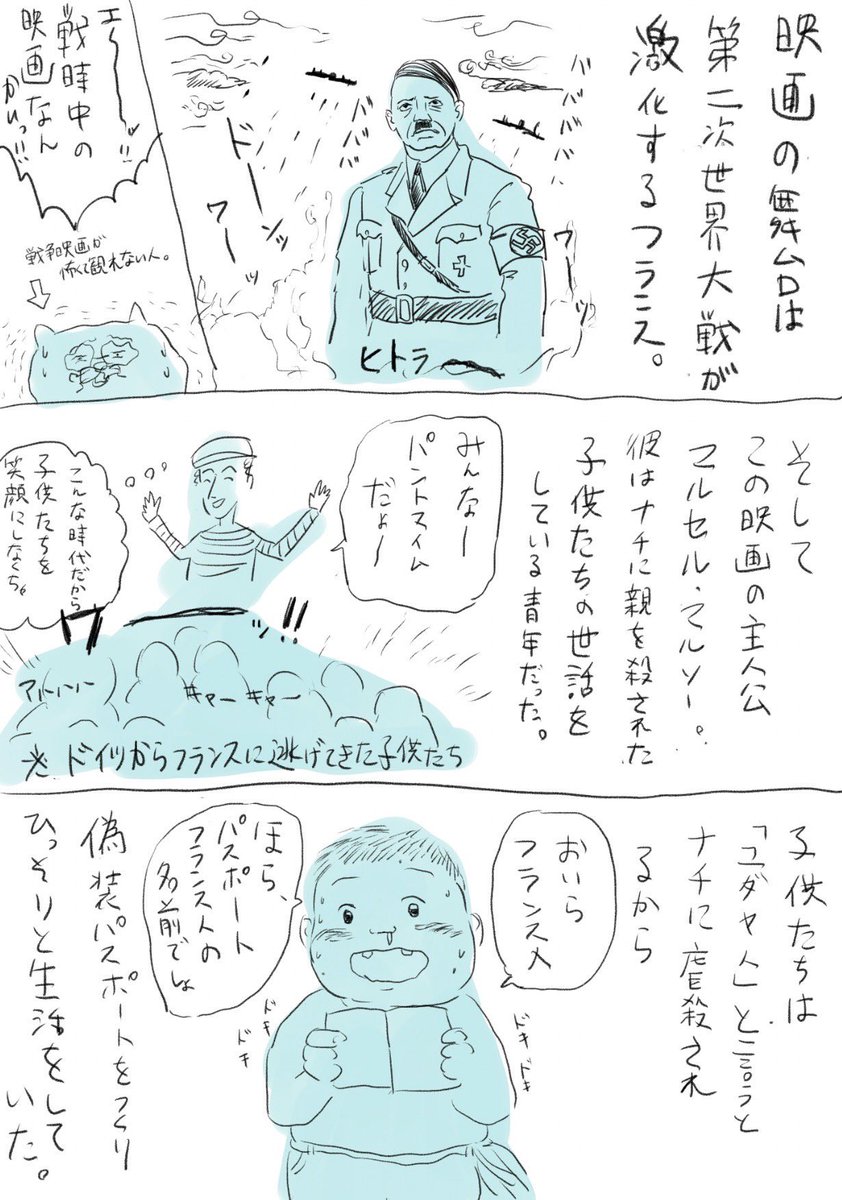 映画の舞台は
第二次世界大戦が
激化するフランス。
ババババ
ババババ
ドーンッ
ワーッ
ワーッ
ヒトラー
エ〜〜〜!!
戦時中の
映画なん
かいっ!!
戦争映画が
怖くて観れない人。
そして
この映画の主人公
マルセル・マルソー。
彼はナチに親を殺された
子供たちの世話を
している青年だった。
みんなー
パントマイム
だよー
こんな時代だから
子供たちを
笑顔にしなくちゃ。
ワーッ!!
アハハハハ
キャーキャー
※ドイツからフランスに逃げてきた子供たち
子供たちは
「ユダヤ人」と言うと
ナチに虐殺され
るから
おいら
フランス人
ほら、
パスポート
フランス人の
名前でしょ
ドキドキ
ドキ
ドキ
偽装パスポートをつくり
ひっそりと生活をして
いた。